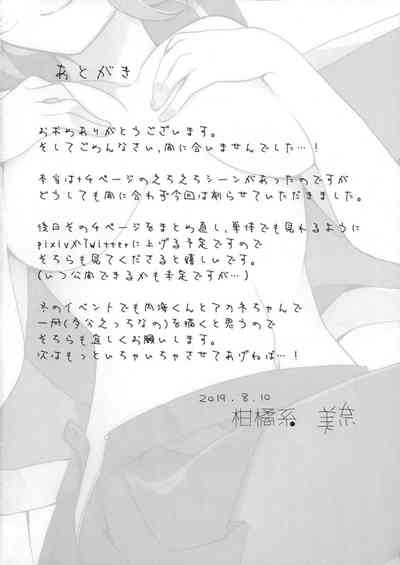 あとがき
お求めありがとうございます。
そしてごめんなさい、間に合いませんでした…！
本当は+4ページのえちえちシーンがあったのですが
どうしても間に合わず今回は削らせていただきました。
後日その4ページをまとめ直し、単体でも見れるように
pixivかTwitterに上げる予定ですので
そちらも見てくださると嬉しいです。
(いつ公開できるかも未定ですが…)
次のイベントでも内海くんとアカネちゃんで
一冊(多分えっちなの)を描くと思うので
そちらも宜しくお願いします。
次はもっといちゃいちゃさせてあげねば…！
2019.8.10
柑橘系 美奈